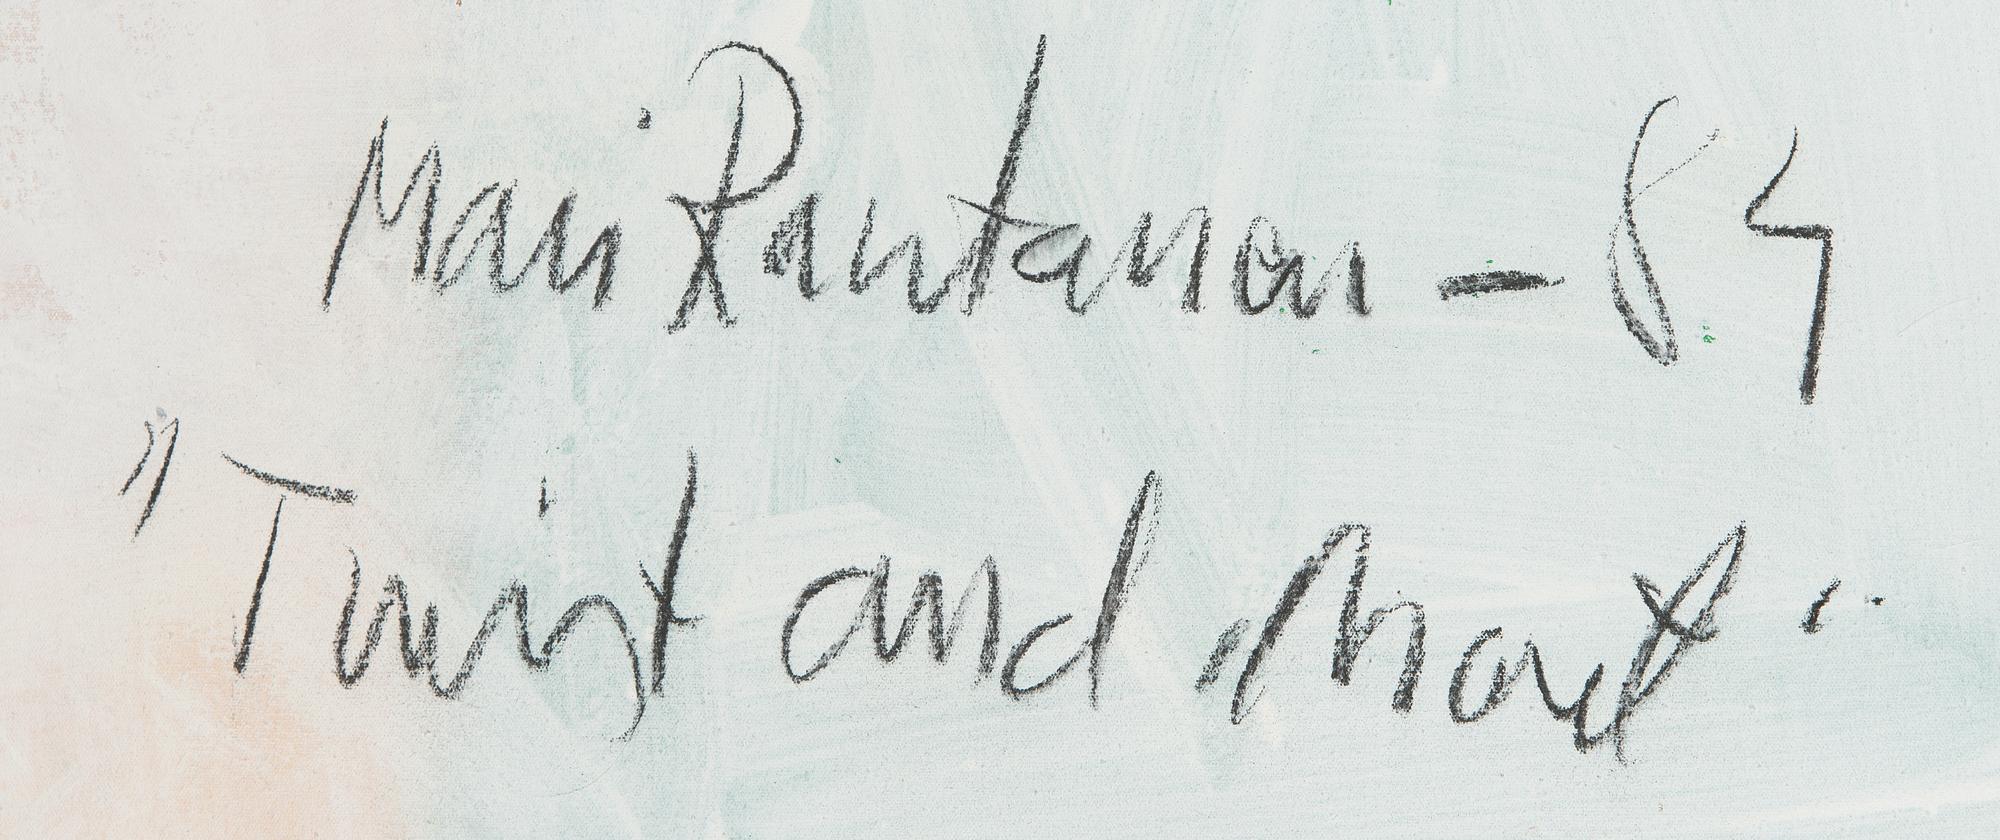 Mari Rantanen - 84
"Twist and shout"